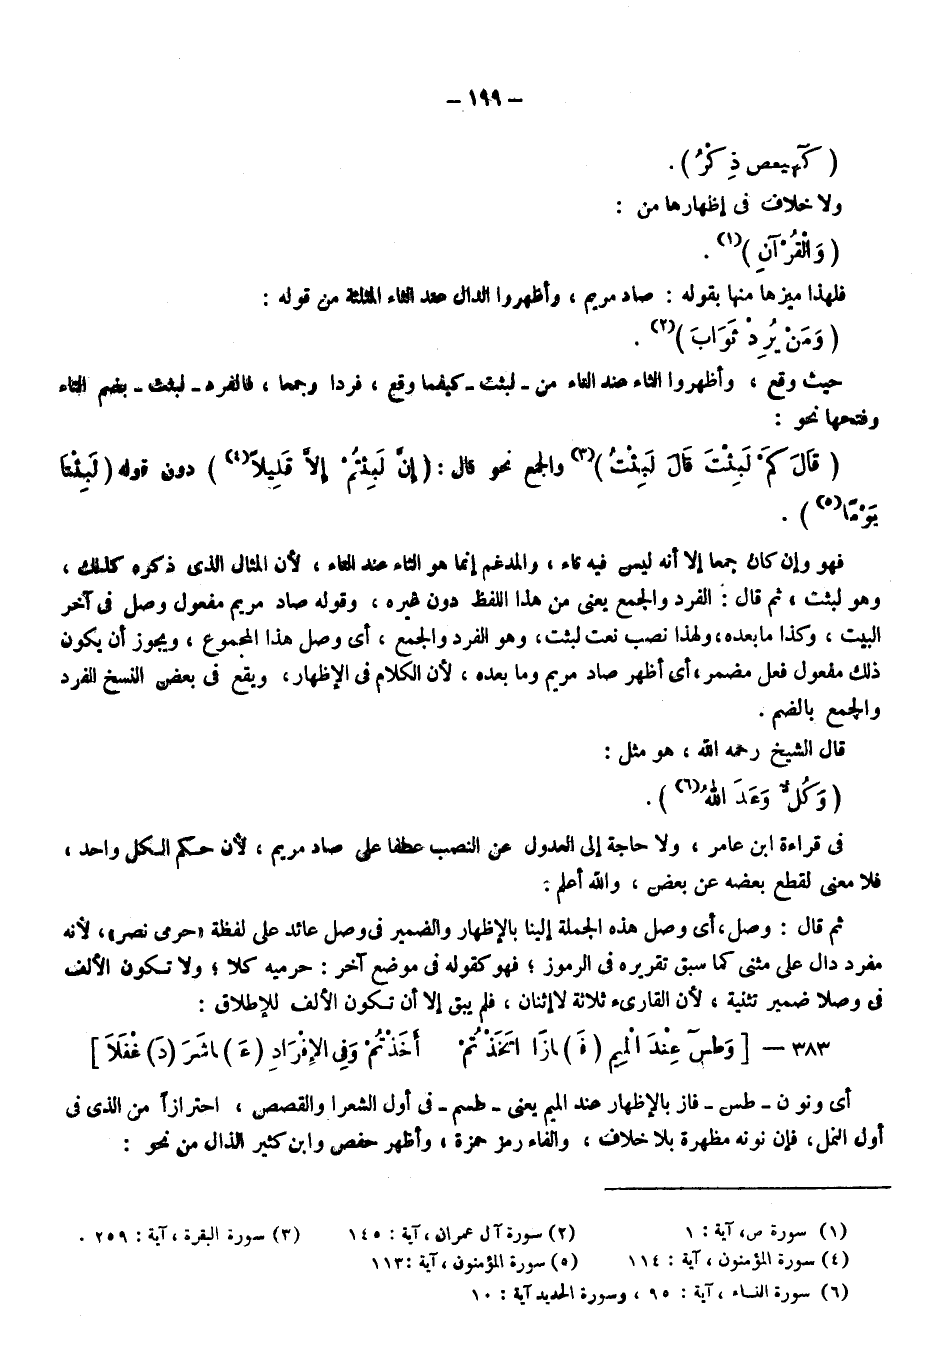 – ١٩٩ –
( كٓهيعص ذِكْرُ ) .
ولا خلاف فى إظهارها من :
( وَالْقُرْآنِ )(١) .
فلهذا ميزها منها بقوله : صاد مريم ، وأظهروا الدال عند الثاء المثلثة من قوله :
( وَمَنْ يُرِدْ ثَوَابَ )(٢) .
حيث وقع ، وأظهروا الثاء عند التاء من ـ لبثت ـ كيفما وقع ، فردا وجمعا ، فالفرد ـ لبثت ـ بضم التاء
وفتحها نحو :
( قَالَ كَمْ لَبِثْتَ قَالَ لَبِثْتُ )(٣) والجمع نحو قال : ( إِنْ لَبِثْتُمْ إِلاَّ قَلِيلاً(٤) ) دون قوله ( لَبِثْنَا
يَوْمًا(٥) ) .
فهو وإن كان جمعا إلا أنه ليس فيه تاء ، والمدغم إنما هو الثاء عند التاء ، لأن المثال الذى ذكره كذلك ،
وهو لبثت ، ثم قال : الفرد والجمع يعنى من هذا اللفظ دون غيره ، وقوله صاد مريم مفعول وصل فى آخر
البيت ، وكذا ما بعده ، ولهذا نصب نعت لبثت ، وهو الفرد والجمع ، أى وصل هذا المجموع ، ويجوز أن يكون
ذلك مفعول فعل مضمر ، أى أظهر صاد مريم وما بعده ، لأن الكلام فى الإظهار ، ويقع فى بعض النسخ الفرد
والجمع بالضم .
قال الشيخ رحمه الله ، هو مثل :
( وَكُلٌّ وَعَدَ اللهُ(٦) ) .
فى قراءة ابن عامر ، ولا حاجة إلى العدول عن النصب عطفا على صاد مريم ، لأن حكم الكل واحد ،
فلا معنى لقطع بعضه عن بعض ، والله أعلم :
ثم قال : وصل ، أى وصل هذه الجملة إلينا بالإظهار والضمير فى وصل عائد على لفظة «حرمى نصر» ، لأنه
مفرد دال على مثنى كما سبق تقريره فى الرموز ؛ فهو كقوله فى موضع آخر : حرميه كلا ؛ ولا تكون الألف
فى وصلا ضمير تثنية ، لأن القارىء ثلاثة لا إثنان ، فلم يبق إلا أن تكون الألف للإطلاق :
٣٨٣ – [ وَطسٓ عِنْدَ الْمِيمِ (فَـ)ـازَا اتَّخَذْتُمْ أَخَذْتُمْ وَفِى الإِفْرَادِ (عَـ)ـاشَرَ (دَ)غْفَلاَ ]
أى ونون ـ طس ـ فاز بالإظهار عند الميم يعنى ـ طسم ـ فى أول الشعرا والقصص ، احترازاً من الذى فى
أول النمل ، فإن نونه مظهرة بلا خلاف ، والفاء رمز حمزة ، وأظهر حفص وابن كثير الذال من نحو :
(١) سورة ص ، آية : ١ (٢) سورة آل عمران ، آية : ١٤٥ (٣) سورة البقرة ، آية : ٢٥٩ .
(٤) سورة المؤمنون ، آية : ١١٤ (٥) سورة المؤمنون ، آية : ١١٣
(٦) سورة النساء ، آية : ٩٥ ، وسورة الحديد آية : ١٠